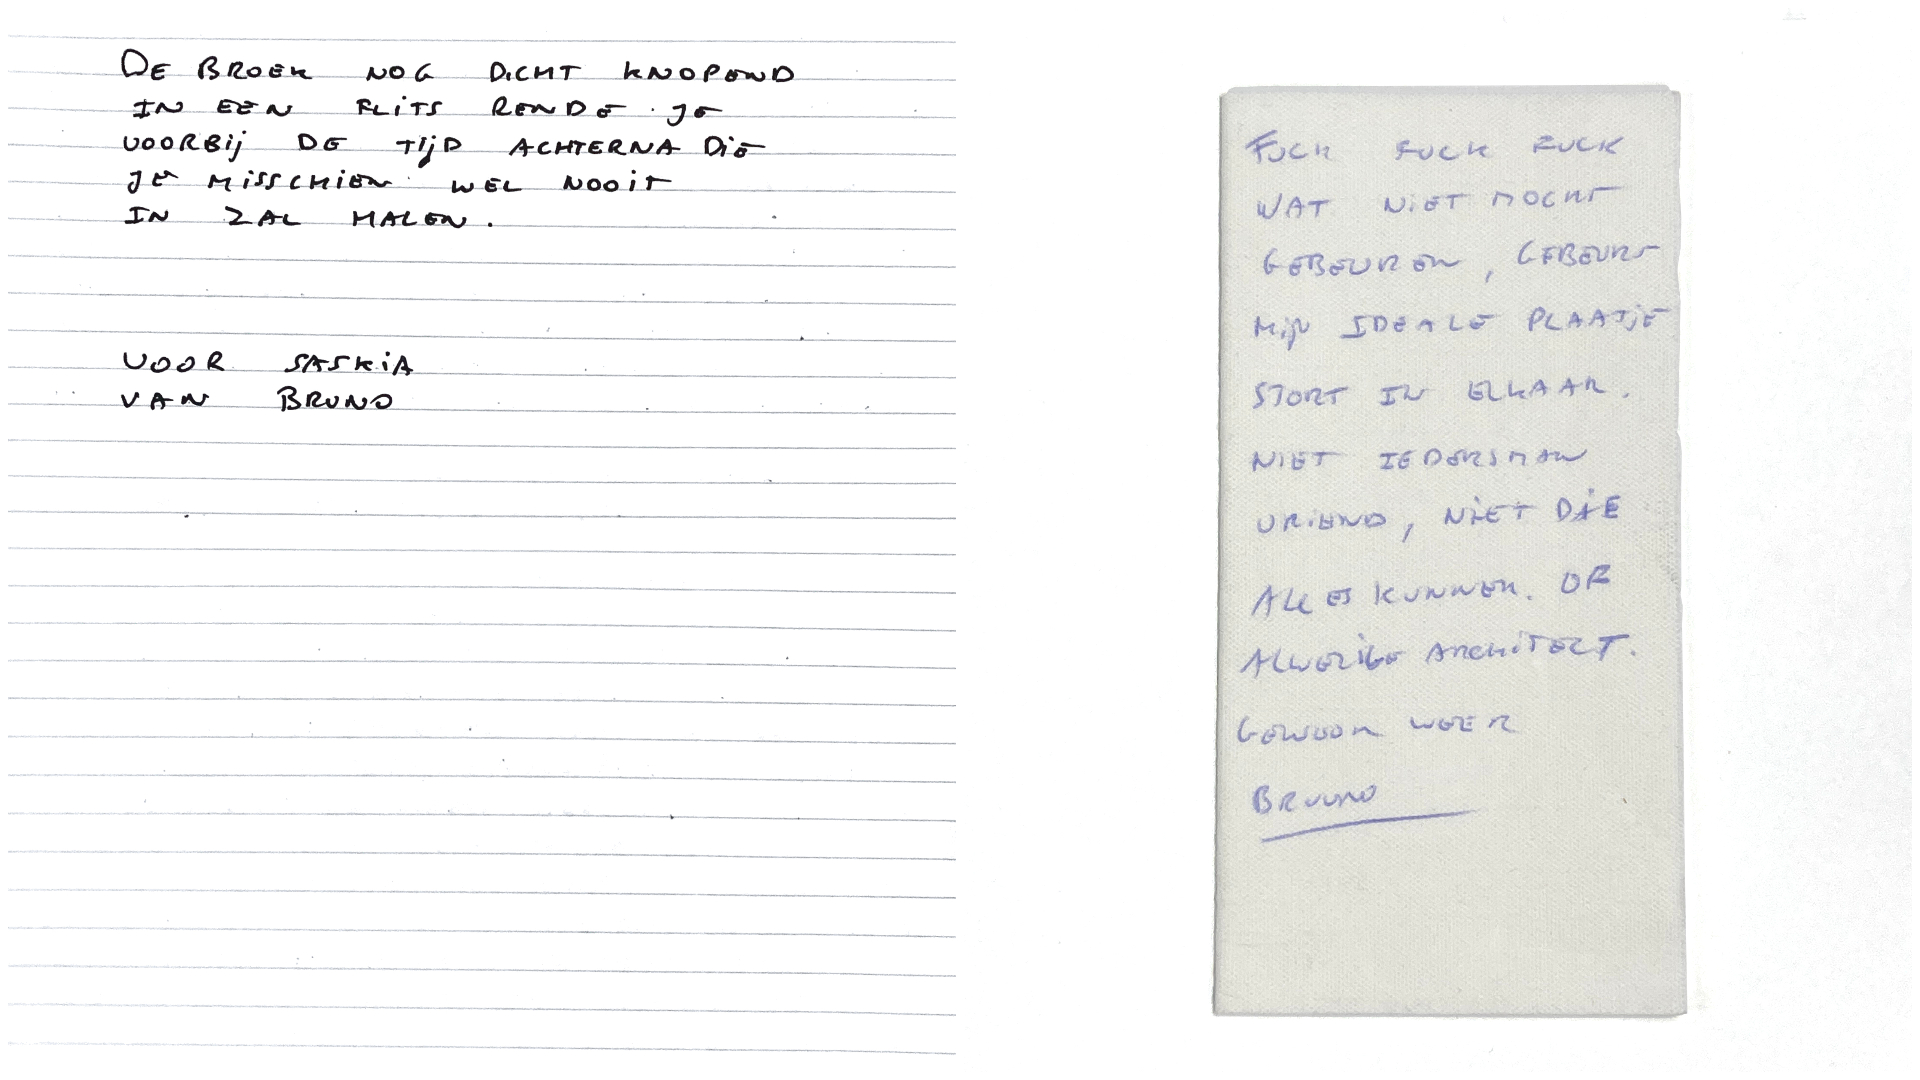 DE BROEK NOG DICHT KNOPEND
IN EEN FLITS RENDE JE
VOORBIJ DE TIJD ACHTERNA DIE
JE MISSCHIEN WEL NOOIT
IN ZAL HALEN.
VOOR SASKIA
VAN BRUNO
FUCK FUCK FUCK
WAT NIET MOCHT
GEBEUREN, GEBEURT
MIJN IDEALE PLAATJE
STORT IN ELKAAR.
NIET IEDERSMAN
VRIEND, NIET DIE
ALLES KUNNEN. OF
ALWEZIGE ARCHITECT.
GEWOON WEER
BRUNO